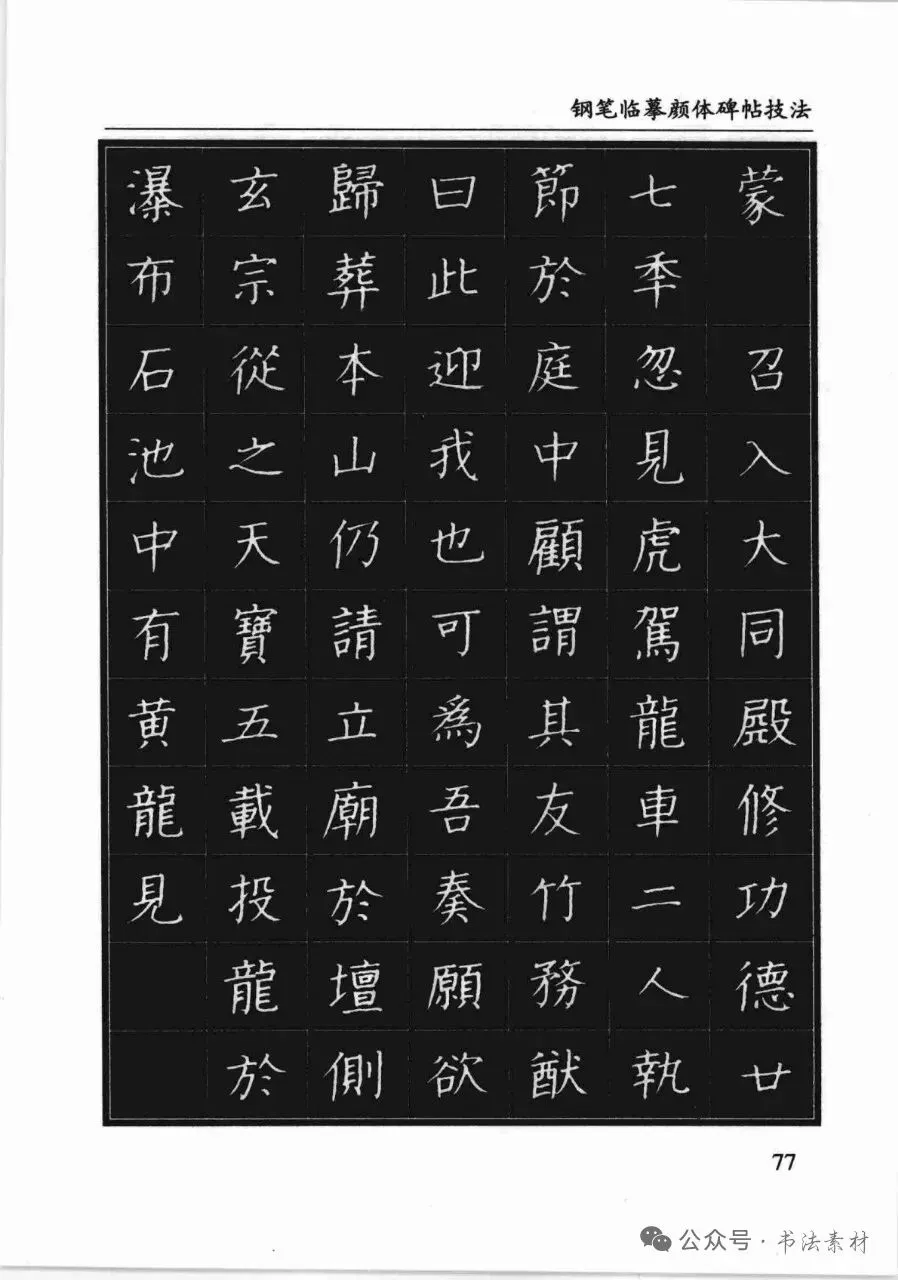 钢笔临摹颜体碑帖技法
蒙 召入大同殿修功德廿
七秊忽見虎駕龍車二人執
節於庭中顧謂其友竹務猷
曰此迎我也可為吾奏願欲
歸葬本山仍請立廟於壇側
玄宗從之天寶五載投龍於
瀑布石池中有黄龍見
77
公众号·书法素材